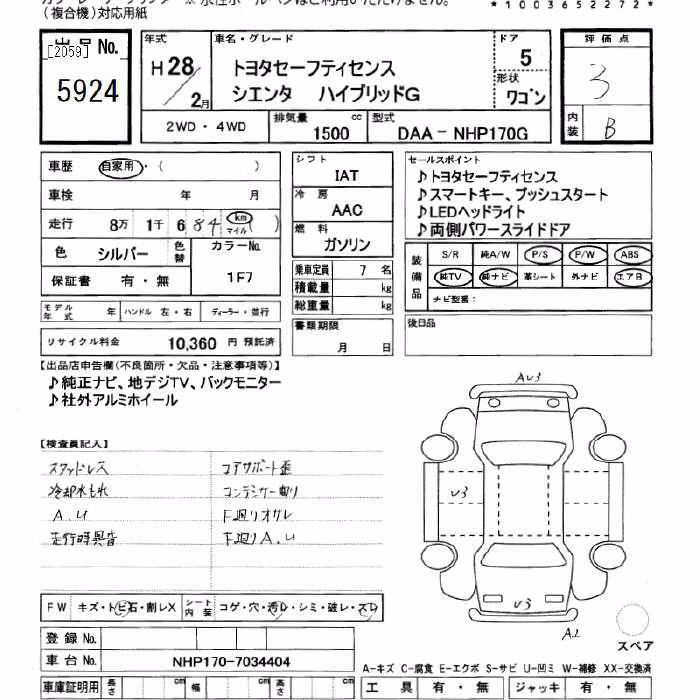 (複合機)対応用紙
*1003652272*
出品 No.
[2059]
5924
年式
H28/2月
車名・グレード
トヨタセーフティセンス
シエンタ ハイブリッドG
ドア
5
形状
ワゴン
評価点
3
内装
B
2WD・4WD
排気量 1500 cc
型式 DAA-NHP170G
車歴 自家用・( )
車検 年 月
走行 8万 1千 684 km マイル
色 シルバー 色替 カラーNo.
保証書 有・無 1F7
モデル年式 年 ハンドル 左・右 ディーラー・並行
リサイクル料金 10,360 円 預託済
シフト
IAT
冷房
AAC
燃料
ガソリン
乗車定員 7 名
積載量 kg
総重量 kg
書類期限
月 日
セールスポイント
♪トヨタセーフティセンス
♪スマートキー、プッシュスタート
♪LEDヘッドライト
♪両側パワースライドドア
装備品
S/R 純A/W P/S P/W ABS
純TV 純ナビ 革シート 外ナビ エアB
ナビ型番:
後日品
【出品店申告欄(不良箇所・欠品・注意事項等)】
♪純正ナビ、地デジTV、バックモニター
♪社外アルミホイール
【検査員記入】
スタッドレス
冷却水もれ
A.U
走行時異音
コアサポート歪
コンデンサー曲り
下廻りオサレ
下廻りA.U
AU3
U3
U3
A2
スペア
FW キズ・トビ石・割レX
シート内装 コゲ・穴・汚レ・シミ・破レ・スレ
登録 No.
車台 No. NHP170-7034404
車庫証明用 長さ cm 幅 cm 高さ cm
A-キズ C-腐食 E-エクボ S-サビ U-凹ミ W-補修 XX-交換済
工具 有・無 ジャッキ 有・無